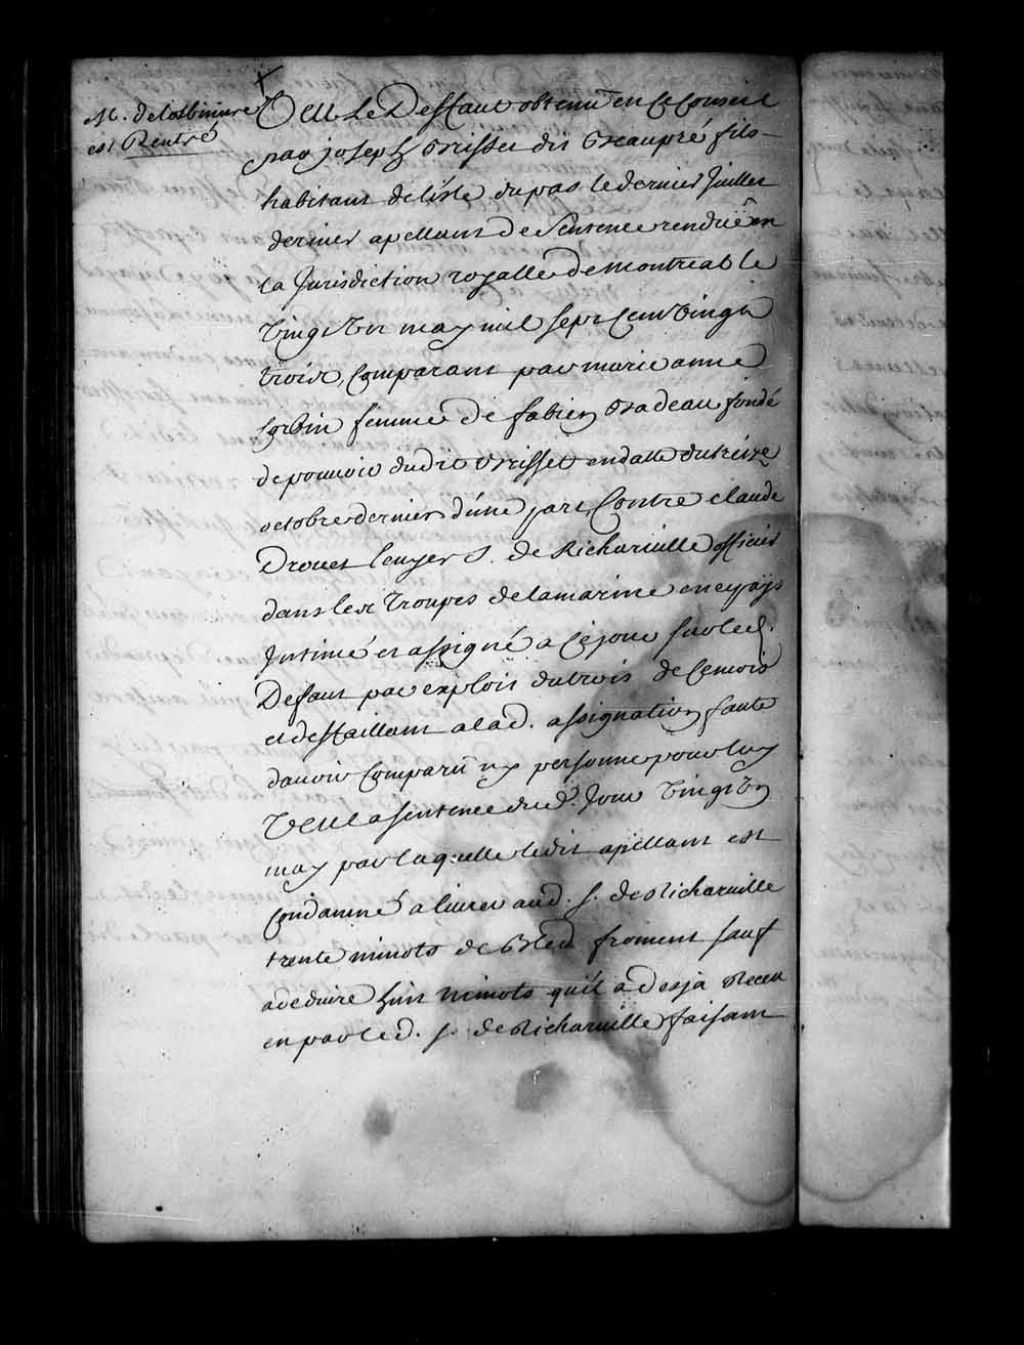 M. de Lotbiniere
est Rentré
Veu Le Deffaut obtenu en Ce Conseil
par joseph Brisset dit Beaupré fils
habitant de l'isle dupas le dernier Juillet
dernier apellant de Sentence rendüe en
la Jurisdiction royalle de montreal le
Vingt Un may mil Sept Cent Vingt
trois, Comparant par marie anne
Corbin femme de fabien Badeau fondé
de pouvoir dudit Brisset en datte du treize
octobre dernier d'une part, Contre claude
Drouet Ecuyer S. de Richarville officier
dans les Troupes de la marine en ce païs
Intimé et assigné a Ce jour par led.
Defaut par exploit du trois de Ce mois
et deffaillant a lad. assignation faute
davoir Comparu ny personne pour luy
Veu la sentence dud. Jour Vingt Un
may par laquelle ledit apellant est
Condamné a livrer aud. S. de Richarville
trente minots de Bled froment sauf
a deduire huit minots quil a desja Receu
en par led. S. de Richarville faisant